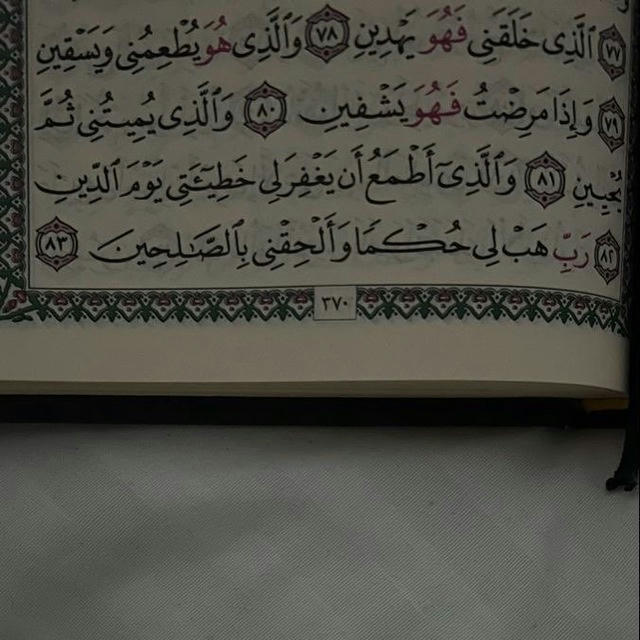 ٧٧ ٱلَّذِى خَلَقَنِى فَهُوَ يَهْدِينِ ٧٨ وَٱلَّذِى هُوَ يُطْعِمُنِى وَيَسْقِينِ
٧٩ وَإِذَا مَرِضْتُ فَهُوَ يَشْفِينِ ٨٠ وَٱلَّذِى يُمِيتُنِى ثُمَّ
يُحْيِينِ ٨١ وَٱلَّذِىٓ أَطْمَعُ أَن يَغْفِرَ لِى خَطِيٓـَٔتِى يَوْمَ ٱلدِّينِ
٨٢ رَبِّ هَبْ لِى حُكْمًا وَأَلْحِقْنِى بِٱلصَّـٰلِحِينَ ٨٣
٣٧٠